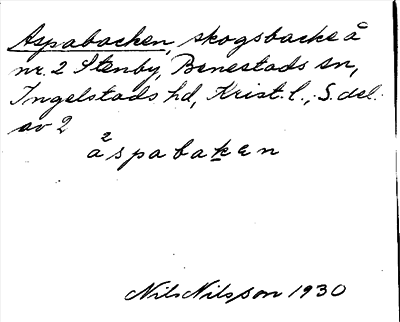 Aspabacken, skogsbacke å
nr. 2 Stenby, Benestads sn,
Ingelstads hd, Krist. l., S. del.
av 2
2
åspabaken
Nils Nilsson 1930